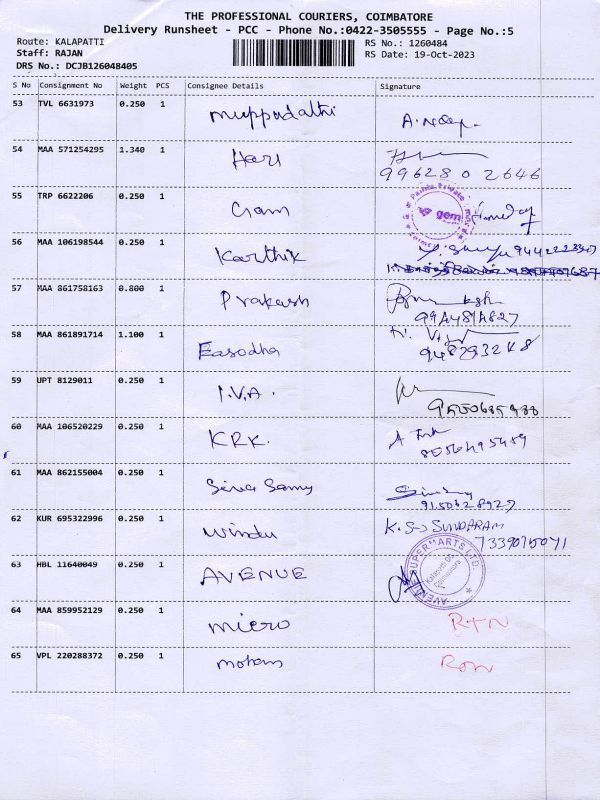 THE PROFESSIONAL COURIERS, COIMBATORE
Delivery Runsheet - PCC - Phone No.:0422-3505555 - Page No.:5
Route: KALAPATTI RS No.: 1260484
Staff: RAJAN RS Date: 19-Oct-2023
DRS No.: DCJB126048405
S No Consignment No Weight PCS Consignee Details Signature
53 TVL 6631973 0.250 1 muppudathi
54 MAA 571254295 1.340 1 Hari
9962802646
55 TRP 6622206 0.250 1 gem
56 MAA 106198544 0.250 1 Karthik
57 MAA 861758163 0.800 1 Prakash
58 MAA 861891714 1.100 1 Easodha
59 UPT 8129011 0.250 1 I.V.A.
60 MAA 106520229 0.250 1 KRK.
61 MAA 862155004 0.250 1 Siva Samy
62 KUR 695322996 0.250 1 windu K.S. SUNDARAM
63 HBL 11640049 0.250 1 AVENUE AVENUE SUPERMARTS LTD.
64 MAA 859952129 0.250 1 micro RTN
65 VPL 220288372 0.250 1 mohan